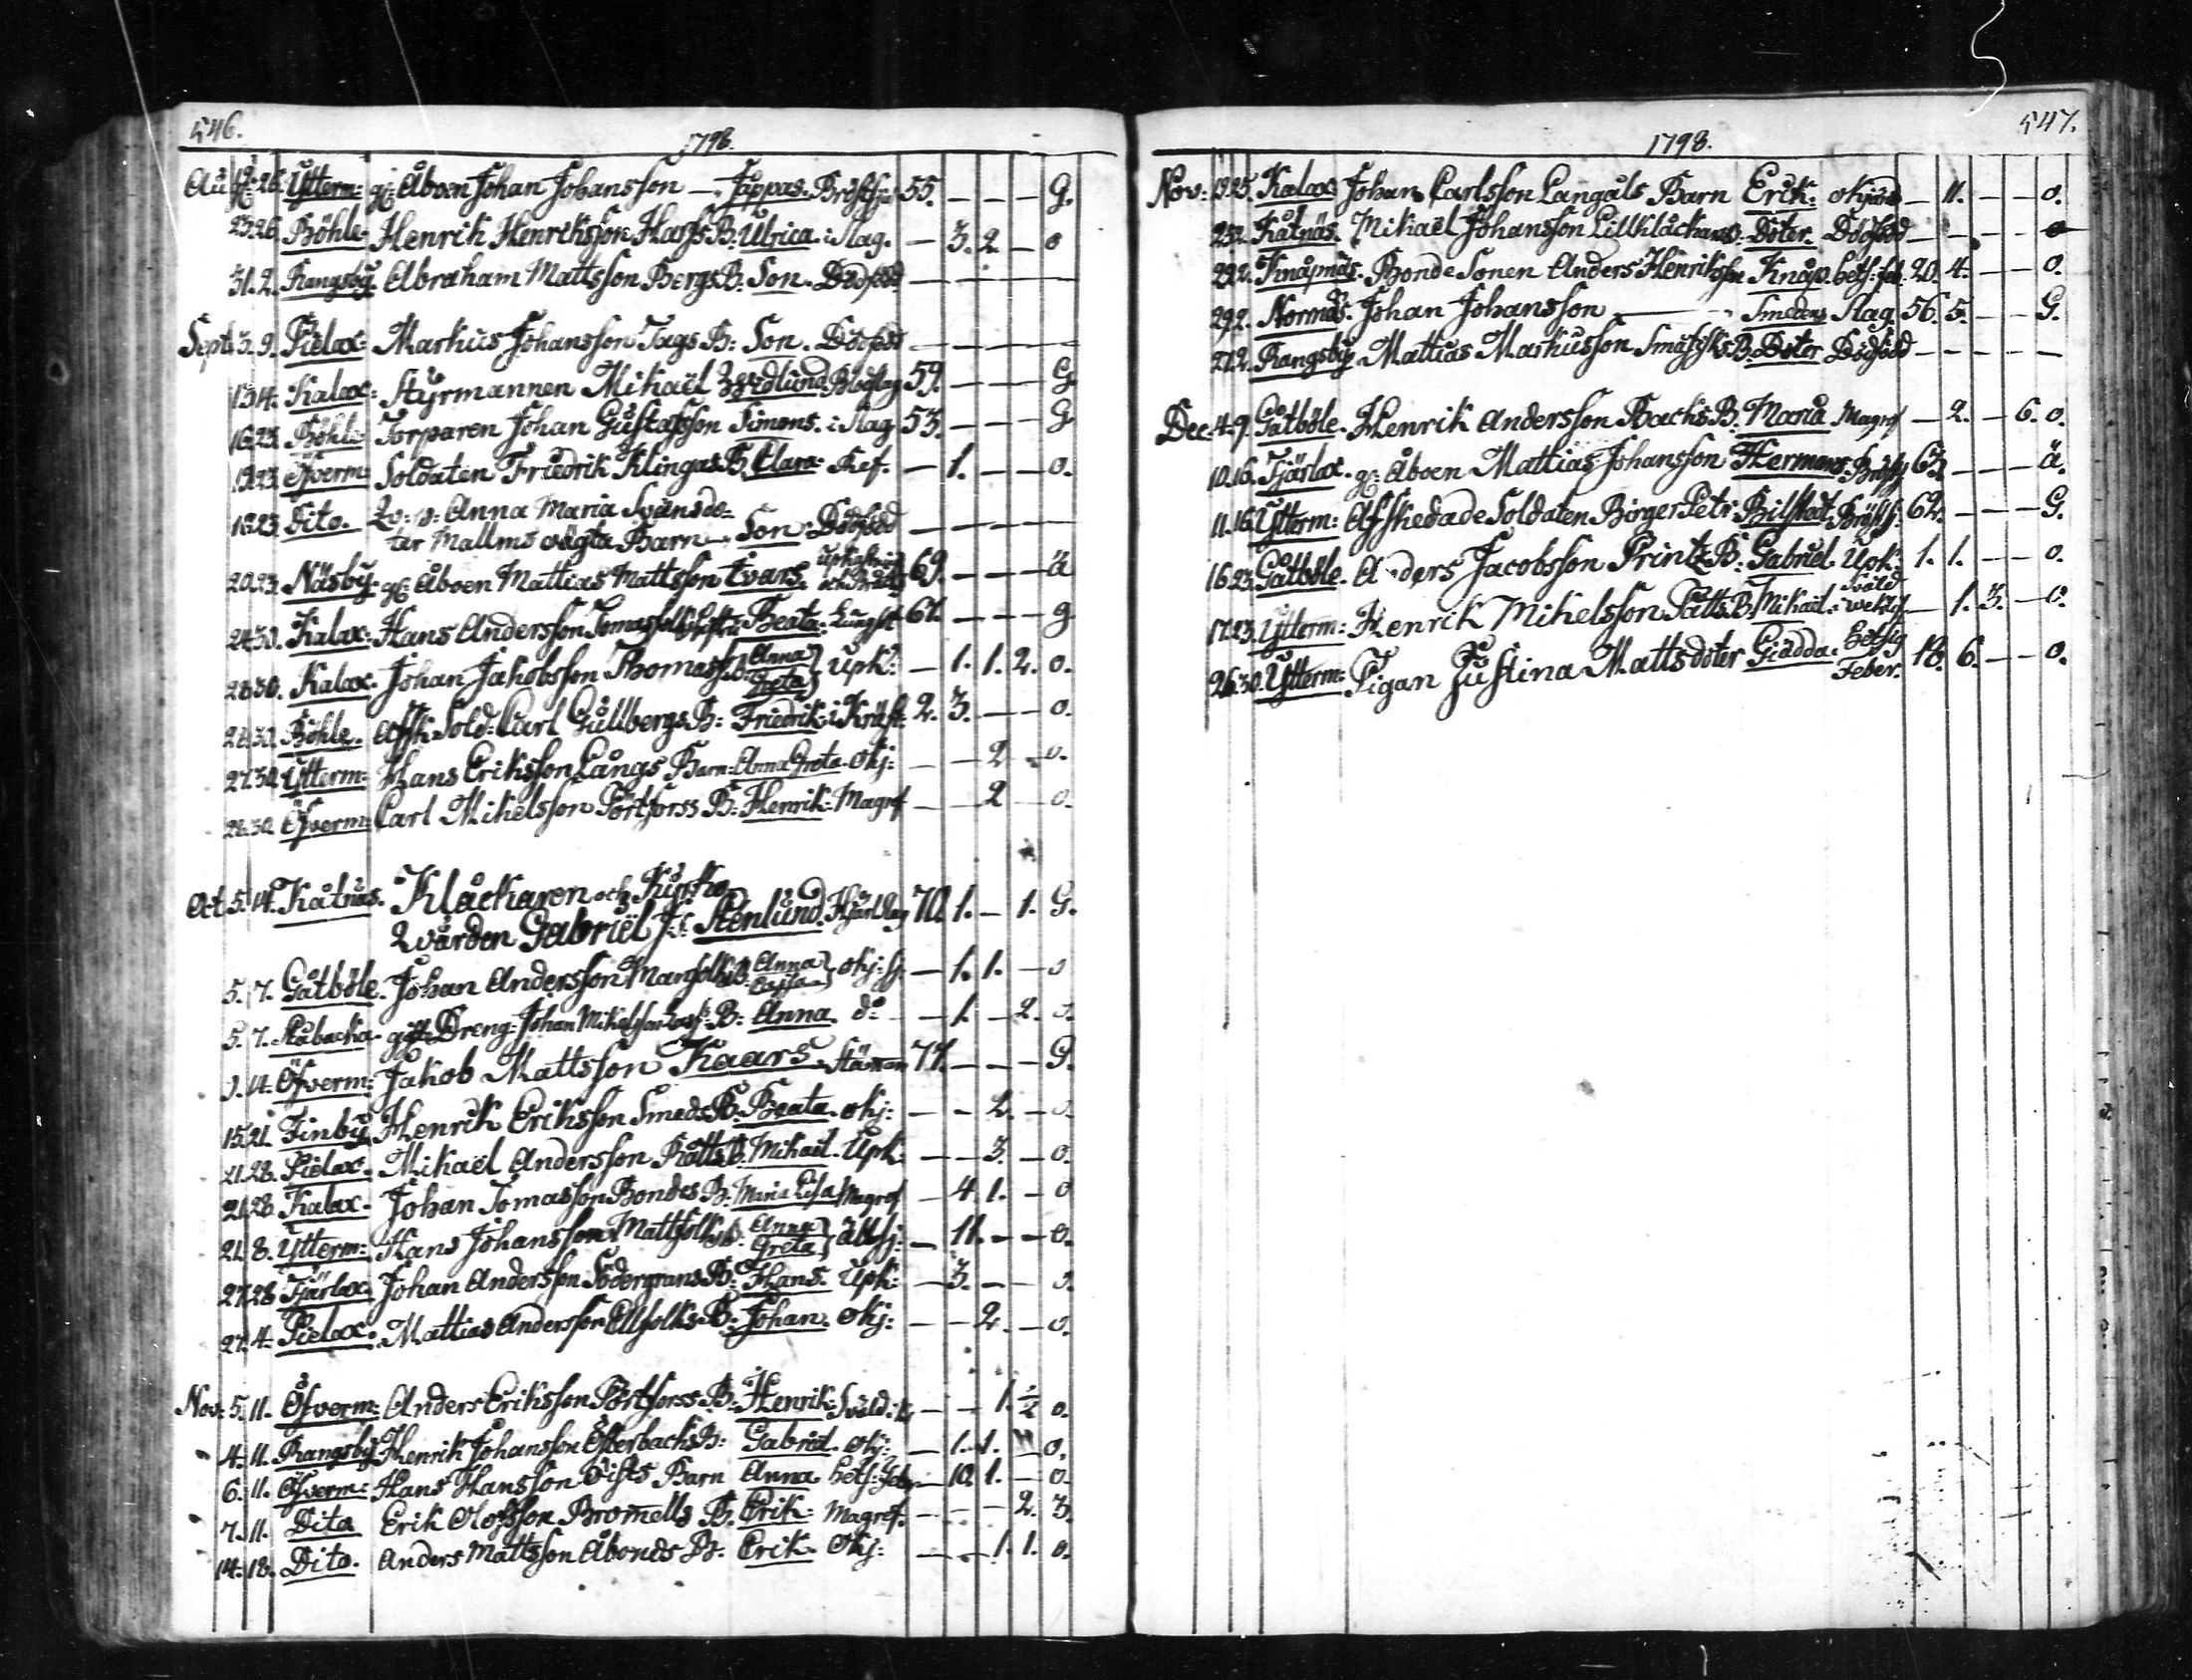 546.
1798.
Aug: 19. 26. Ytterm: gf: Åboen Johan Johansson — Jåppas. Bröstsju 55. — — — G.
23. 26. Böhle. Henrik Henriksson Harfs B: Ulrica. i Slag. — 3. 2 — o
31. 2. Rangsby. Abraham Mattsson Bergs B: Son. Dödfödd — — — —
Sept: 5. 9. Pielax: Markus Johansson Tags B: Son. Dödfödd — — — —
13. 14. Kalax: Styrmannen Mikaël Blodslag 59. — — — G.
16. 23. Böhle Torparen Johan Gustafsson Simons. i Slag 53. — — — G
19. 23. Öfverm: Soldaten Friedrik Klingas B. Clara: Ref. — 1. — — o.
18. 23. Dito. Qv: p: Anna Maria Svänsdo-
ter Mallms oägta Barn — Son: Dödfödd — — — —
20. 23. Näsby. gf: Åboen Mattias Mattsson Evars. 69. — — — ä
24. 30. Kalax: Hans Andersson Tomasfolks Beata: Lungsot 61. — — — g
28. 30. Kalax. Johan Jakobsson Thomas B: Anna Greta} Upk: — 1. 1. 2. o.
28. 30. Böhle. Afsk. Sold: Carl Gullbergs B: Friedrik: i Kräft: 2. 3. — — o.
27. 30. Ytterm: Hans Eriksson Långs Barn: Anna Greta. Okj: — — 2 — o.
28. 30. Öfverm: Carl Mikelsson Pörtforss B: Henrik: Magref — — 2 — o.
Oct: 5. 14. Kåtnäs. Klåckaren och Kyrko
Wärden Gabriël J:s Stenlund. Slag 70. 1. — 1. G.
5. 7. Gåtböle. Johan Andersson Marsfolks B: Anna Cajsa} okj: sj: — 1. 1. — o
5. 7. Stubacka. gift Dreng: Johan Mikelsson B: Anna d:o — 1. — 2. o.
9. 14. Öfverm: Jakob Mattsson Kaars. 77. — — — G.
15. 21. Finby. Henrik Eriksson Smeds B. Beata. okj: — — 2. — o.
21. 28. Pielax. Mikaël Andersson Rätts B. Mikaël. Upk: — — 3. — o.
21. 28. Kalax. Johan Tomasson Bondes B: Maria Lisa Magref — 4. 1. — o
21. 8. Ytterm: Hans Johansson Mattsfolks B: Anna Greta} — 11. — — o.
27. 28. Tjärlax. Johan Andersson Södergrans B: Hans. Upk: — 3. — — o.
27. 4. Pielax. Mattias Andersson Ellfolks B: Johan. Okj: — — 2. — o.
Nov: 5. 11. Öfverm: Anders Eriksson Pörtforss B: Henrik: — — 1. ½ o.
4. 11. Rangsby Henrik Johansson Österbacks B: Gabriel. Okj: — 1. 1. — o.
6. 11. Öfverm: Hans Hansson Dists Barn Anna hets: Feber — 10. 1. — o.
7. 11. Dito Erik Olofsson Bromells B. Erik: Magref. — — — 2. 3.
14. 18. Dito. Anders Mattsson Åbonds B: Erik. Okj: — — 1. 1. o.
547.
1798.
Nov: 19. 25. Kalax: Johan Carlsson Långåls Barn Erik. — 11. — — o.
25. 2. Kåtnäs. Mikaël Johansson Lillklåckars: Doter. Dödfödd — — — o
29. 2. Knåpnäs. Bonde Sonen Anders Henriksson Knåp. hets: feb. 20. 4. — — o.
29. 2. Normäs. Johan Johansson — Smedens Slag. 56. 5. — — G.
27. 2. Rangsby. Mattias Markusson B. Doter Dödfödd — — — —
Dec: 4. 9. Gåtböle. Henrik Andersson Backs B. Maria Magref — 2. — 6. o.
10. 16. Tjärlax. gf: Åboen Mattias Johansson Hermans. Bröstsj 63. — — — ä.
11. 16. Ytterm: Afskedade Soldaten Birger Petr: Bilstedt. Bröstsj: 62. — — — G.
16. 23. Gåtböle. Anders Jacobsson Printz B: Gabriel. Upk: 1. 1. — — o.
17. 23. Ytterm: Henrik Mikelsson Pätts B. Mikaël. — 1. 3. — o.
26. 30. Ytterm: Pigan Justina Mattsdoter Gädda. hetsig Feber. 18. 6. — — o.